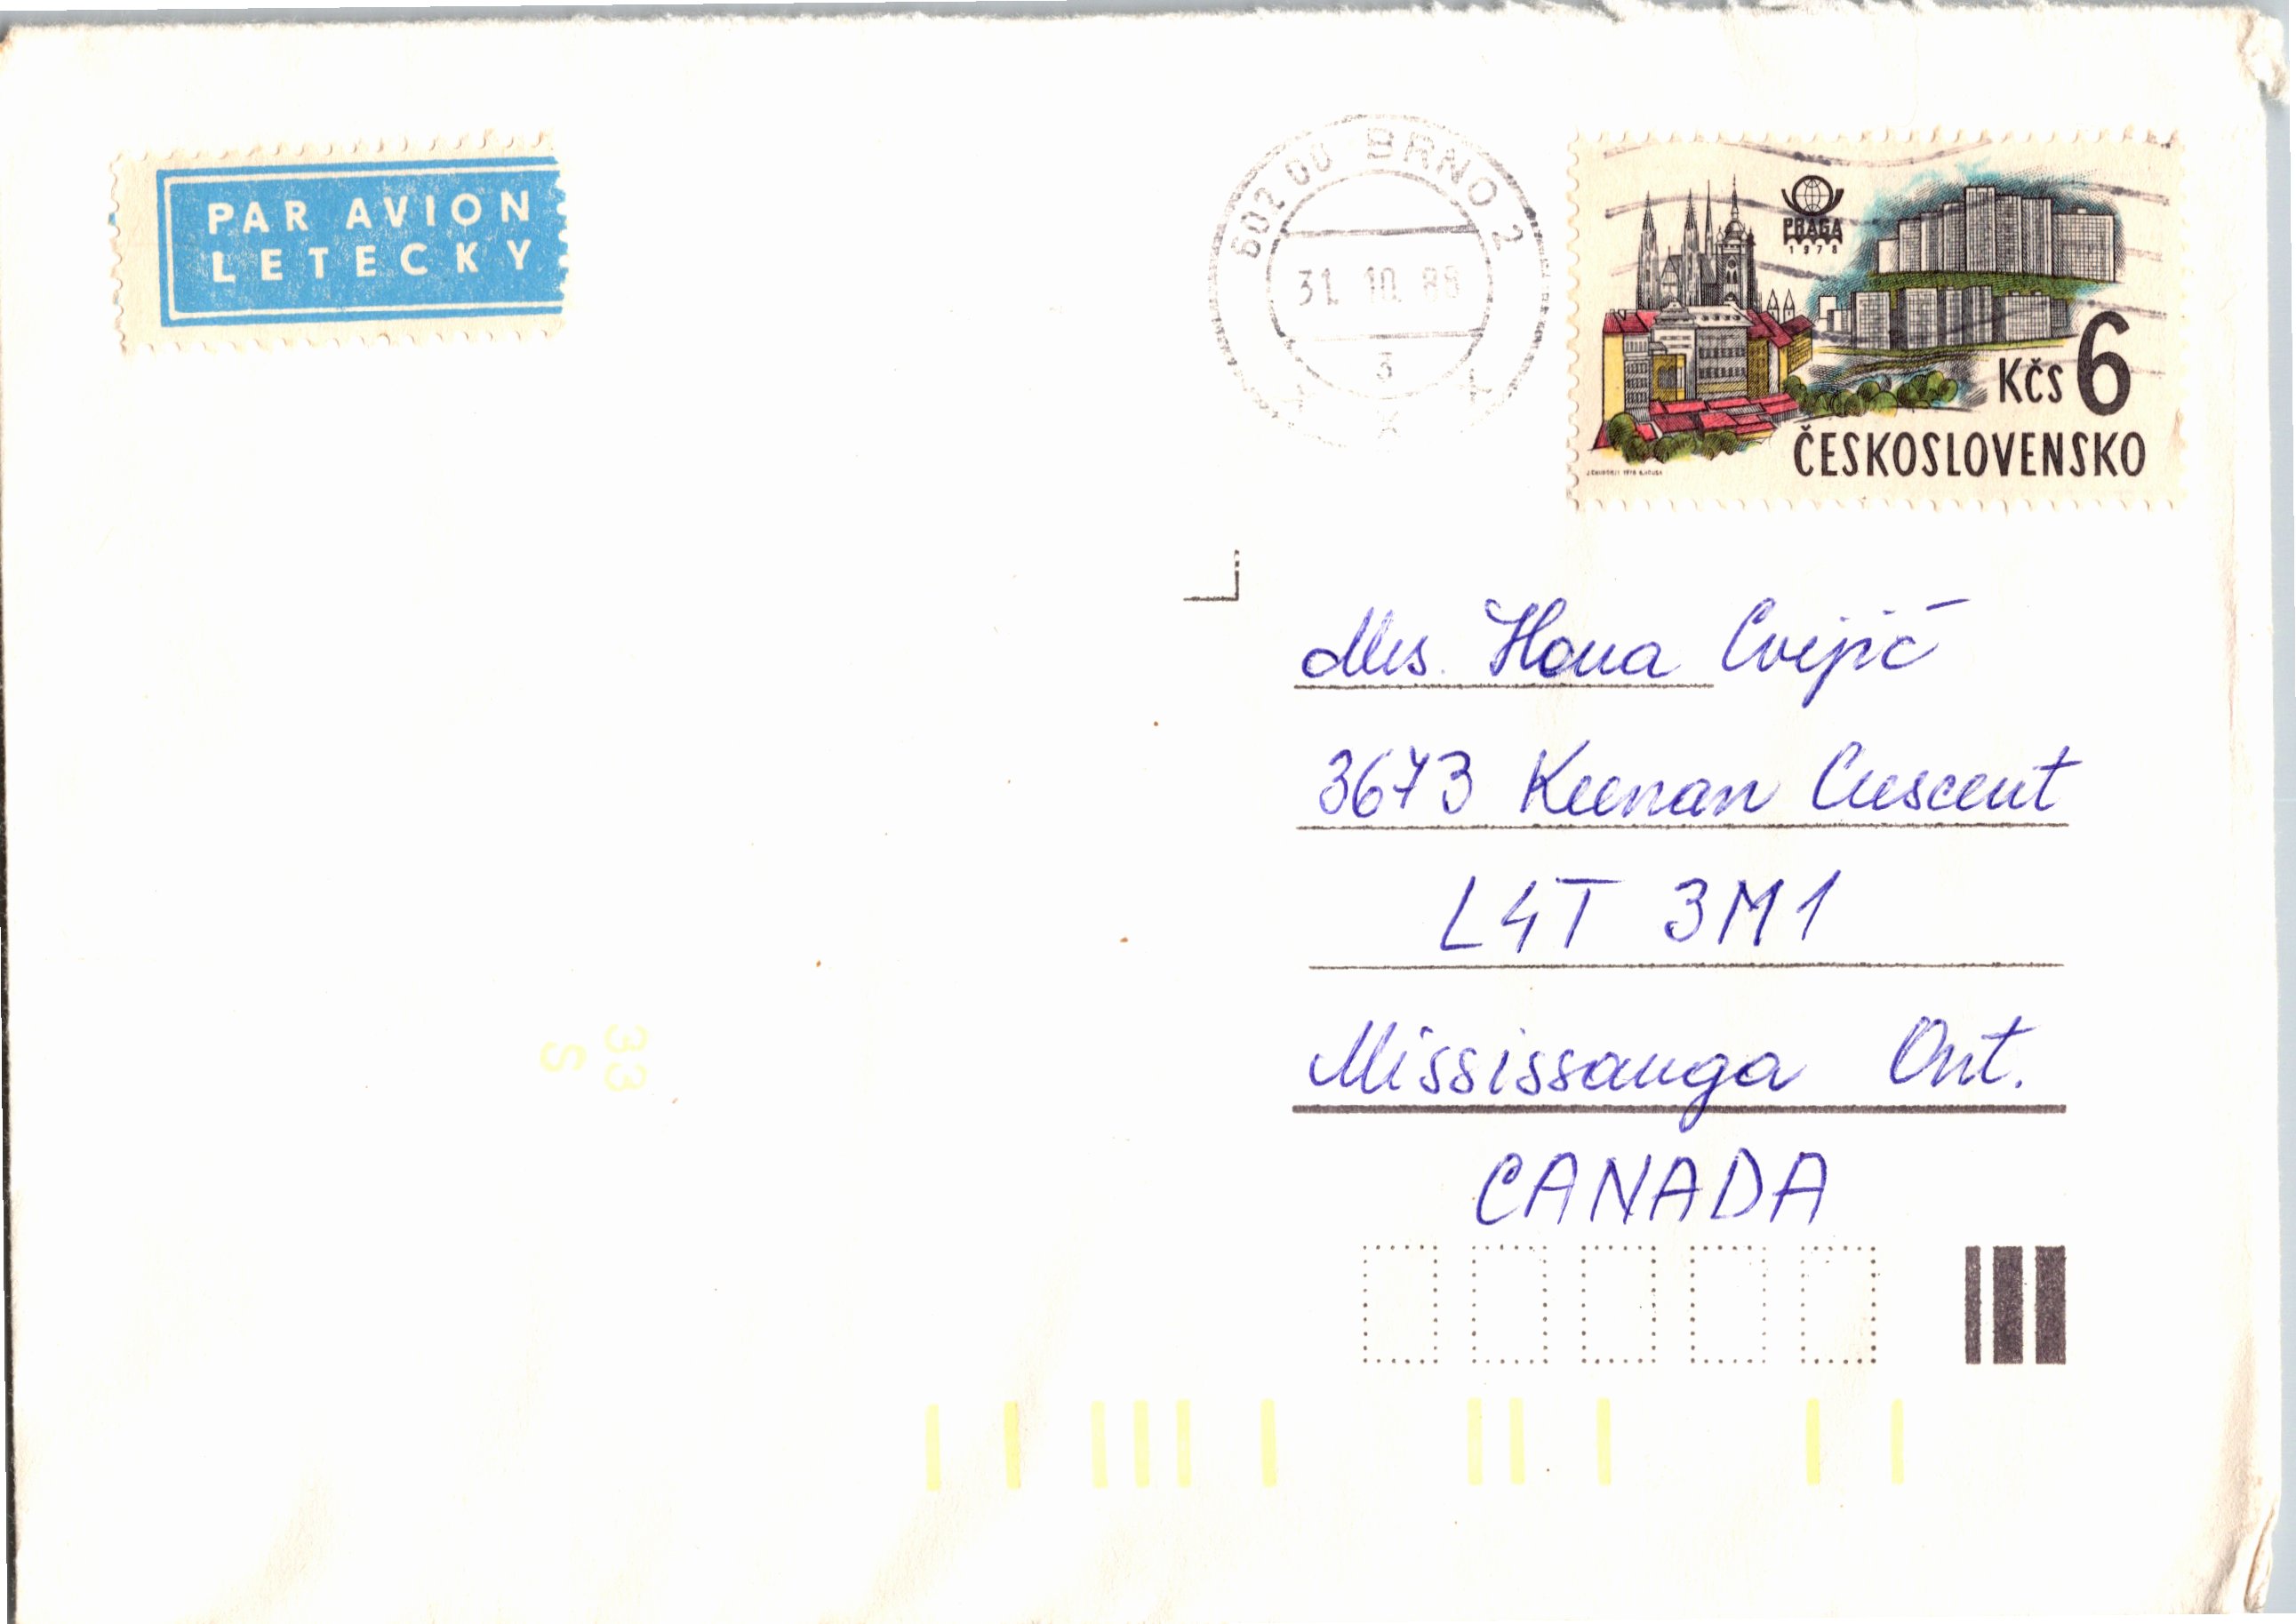 PAR AVION
LETECKY
602 00 BRNO 2
31.10.88
3
PRAGA
1978
Kčs 6
ČESKOSLOVENSKO
Mrs. Ilona Cvejić
3673 Keenan Crescent
L4T 3M1
Mississauga Ont.
CANADA
33
S